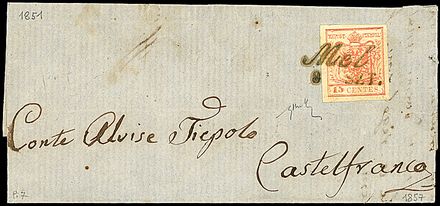 1851
KKPOST-STEMPEL
Mel
8 SET.
15 CENTES.
Conte Alvise Tiepolo
Castelfranco
P. 7
1857